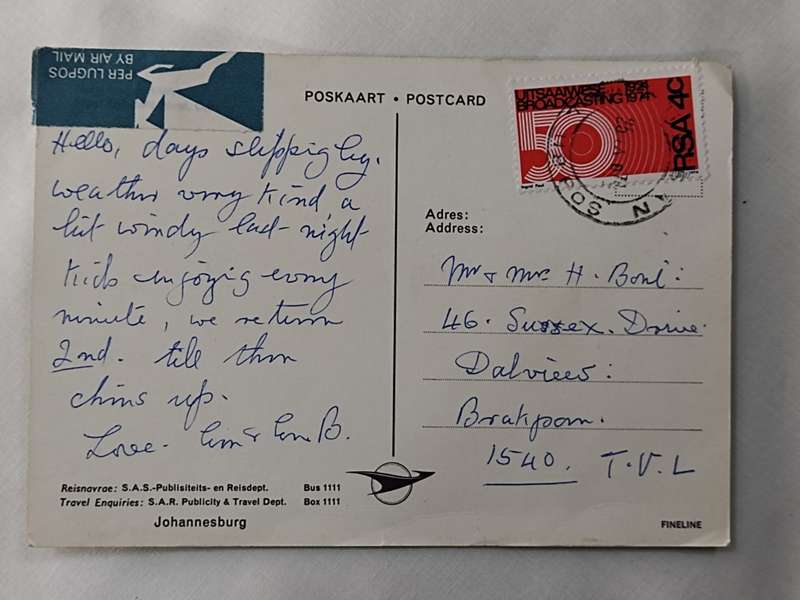 PER LUGPOS
BY AIR MAIL
POSKAART • POSTCARD
UITSAAIWESE
BROADCASTING 1974
50
RSA 4c
Hello, days slippig by.
weather very kind a
bit windy last night
kids enjoyig every
minute, we return
2nd. till then
chins up.
Love. B.
Adres:
Address:
Mr & Mrs H.
46. Sussex. Drive.
Dalview:
Brakpan.
1540. T.V.L
Reisnavrae: S.A.S.-Publisiteits- en Reisdept. Bus 1111
Travel Enquiries: S.A.R. Publicity & Travel Dept. Box 1111
Johannesburg
FINELINE